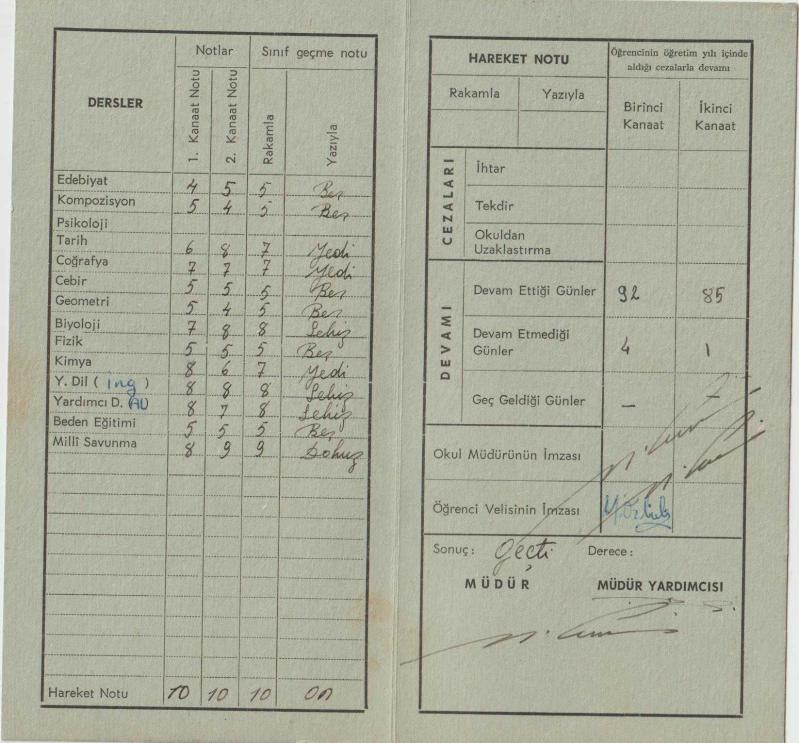 DERSLER
Notlar
Sınıf geçme notu
1. Kanaat Notu
2. Kanaat Notu
Rakamla
Yazıyla
Edebiyat 4 5 5 Beş
Kompozisyon 5 4 5 Beş
Psikoloji
Tarih 6 8 7 Yedi
Coğrafya 7 7 7 Yedi
Cebir 5 5 5 Beş
Geometri 5 4 5 Beş
Biyoloji 7 8 8 Sekiz
Fizik 5 5 5 Beş
Kimya 8 6 7 Yedi
Y. Dil ( ing ) 8 8 8 Sekiz
Yardımcı D. 8 7 8 Sekiz
Beden Eğitimi 5 5 5 Beş
Millî Savunma 8 9 9 Dokuz
Hareket Notu 10 10 10 on
HAREKET NOTU
Rakamla
Yazıyla
Öğrencinin öğretim yılı içinde
aldığı cezalarla devamı
Birinci
Kanaat
İkinci
Kanaat
CEZALARI
İhtar
Tekdir
Okuldan
Uzaklastırma
DEVAMI
Devam Ettiği Günler 92 85
Devam Etmediği
Günler 4 1
Geç Geldiği Günler — —
Okul Müdürünün İmzası
Öğrenci Velisinin İmzası
Sonuç: Geçti Derece:
MÜDÜR
MÜDÜR YARDIMCISI